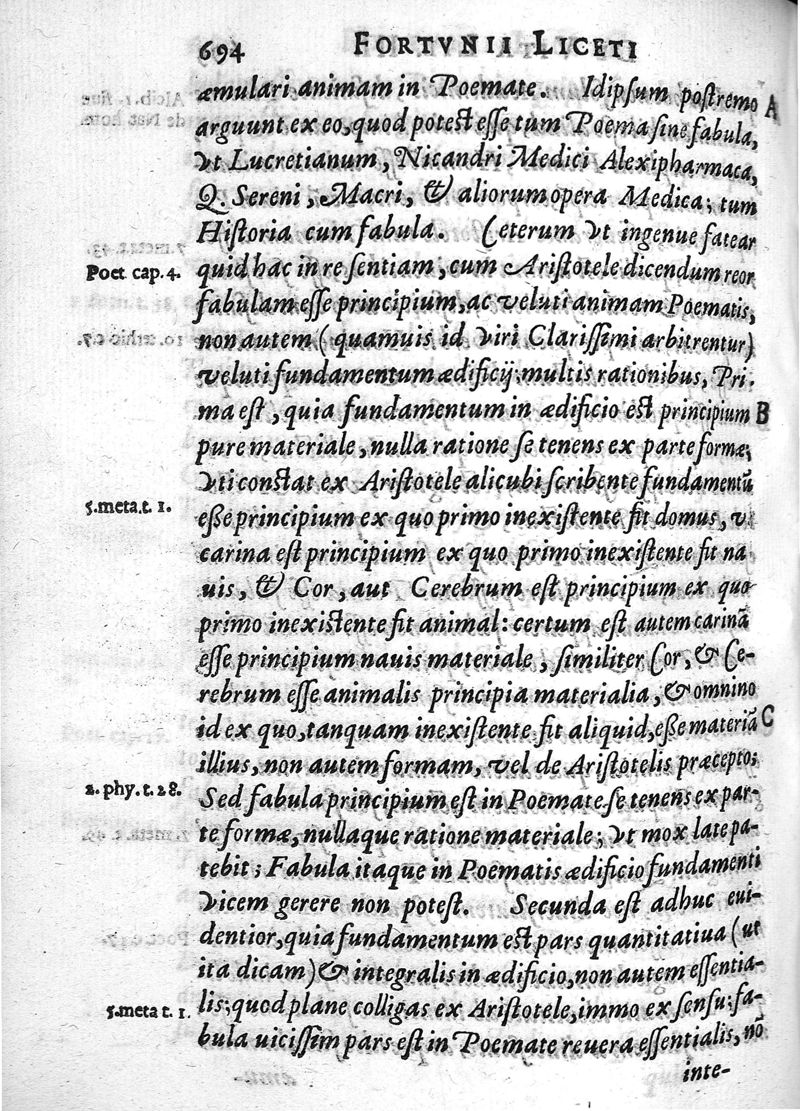 694 FORTVNII LICETI
æmulari animam in Poemate. Idipſum poſtremo A
arguunt ex eo, quod poteſt eſſe tum Poema ſine fabula,
vt Lucretianum, Nicandri Medici Alexipharmaca,
Q. Sereni, Macri, & aliorum opera Medica; tum
Hiſtoria cum fabula. Ceterum vt ingenue fatear
Poet. cap. 4. quid hac in re ſentiam, cum Ariſtotele dicendum reor
fabulam eſſe principium, ac veluti animam Poematis,
non autem (quamuis id viri Clariſſimi arbitrentur)
veluti fundamentum ædificij; multis rationibus, Pri-
ma eſt, quia fundamentum in ædificio eſt principium B
pure materiale, nulla ratione ſe tenens ex parte formæ;
vti conſtat ex Ariſtotele alicubi ſcribente fundamentū
5. meta. t. 1. eſſe principium ex quo primo inexiſtente fit domus, vt
carina eſt principium ex quo primo inexiſtente fit na
uis, & Cor, aut Cerebrum eſt principium ex quo
primo inexiſtente fit animal: certum eſt autem carinā
eſſe principium nauis materiale, ſimiliter Cor, & Ce-
rebrum eſſe animalis principia materialia, & omnino
id ex quo, tanquam inexiſtente fit aliquid, eſſe materiā C
illius, non autem formam, vel de Ariſtotelis præcepto;
2. phy. t. 28. Sed fabula principium eſt in Poemate ſe tenens ex par-
te formæ, nullaque ratione materiale; vt mox late pa-
tebit; Fabula itaque in Poematis ædificio fundamenti
vicem gerere non poteſt. Secunda eſt adhuc eui-
dentior, quia fundamentum eſt pars quantitatiua (ut
ita dicam) & integralis in ædificio, non autem eſſentia-
5. meta t. 1. lis; quod plane colligas ex Ariſtotele, immo ex ſenſu; fa-
bula uiciſſim pars eſt in Poemate reuera eſſentialis, nō
inte-